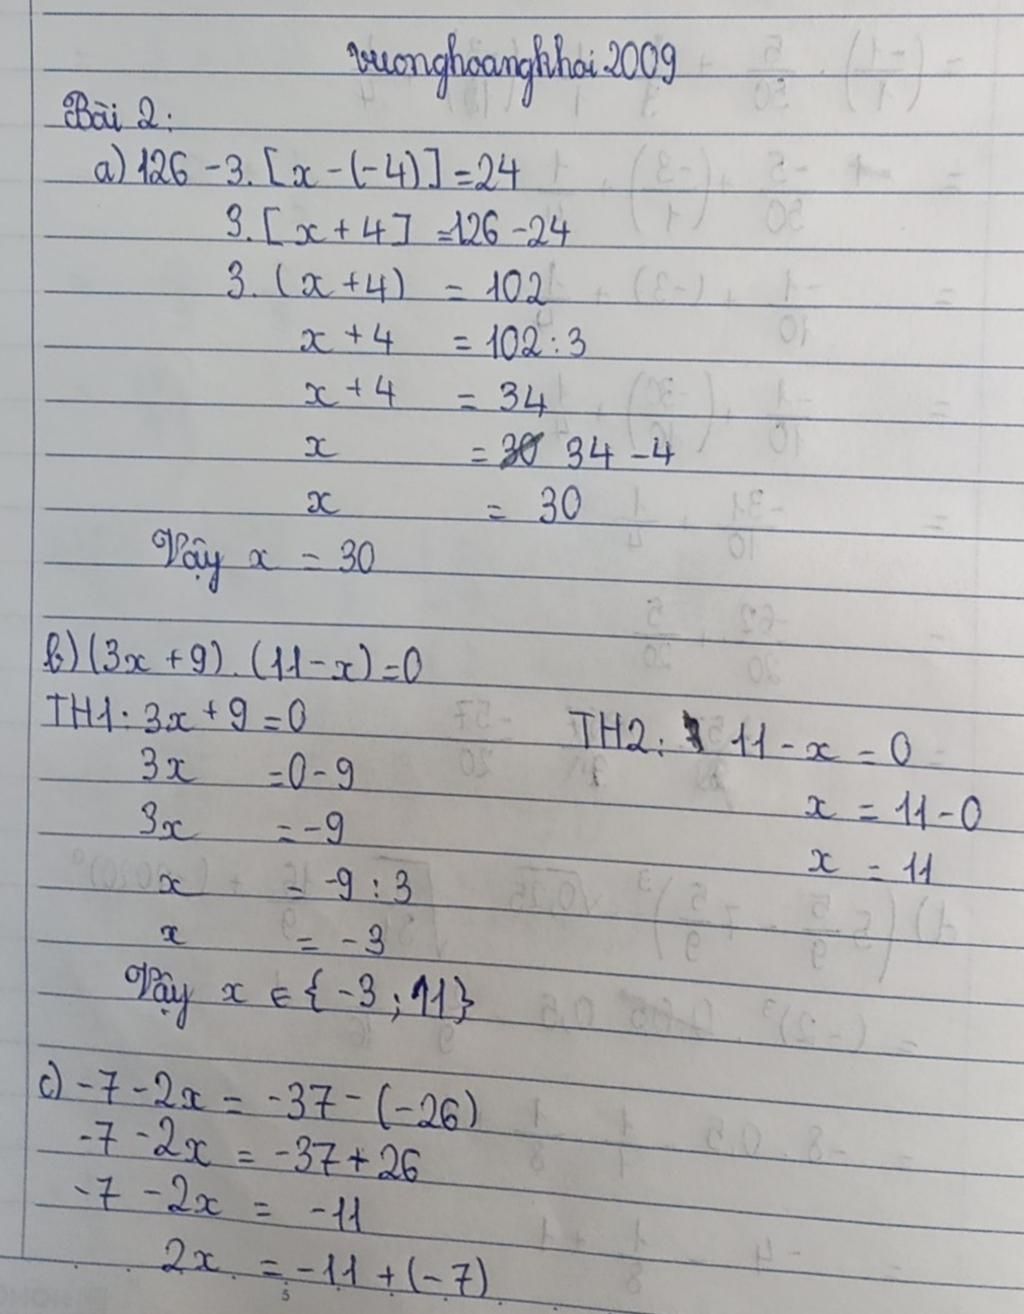 vuonghoangkhai2009
Bài 2:
a) 126 - 3. [x - (-4)] = 24
3. [x + 4] = 126 - 24
3. (x + 4) = 102
x + 4 = 102 : 3
x + 4 = 34
x = 34 - 4
x = 30
Vậy x = 30
b) (3x + 9) . (11 - x) = 0
TH1: 3x + 9 = 0
3x = 0 - 9
3x = -9
x = -9 : 3
x = -3
TH2: 11 - x = 0
x = 11 - 0
x = 11
Vậy x ∈ {-3 ; 11}
c) -7 - 2x = -37 - (-26)
-7 - 2x = -37 + 26
-7 - 2x = -11
2x = -11 + (-7)